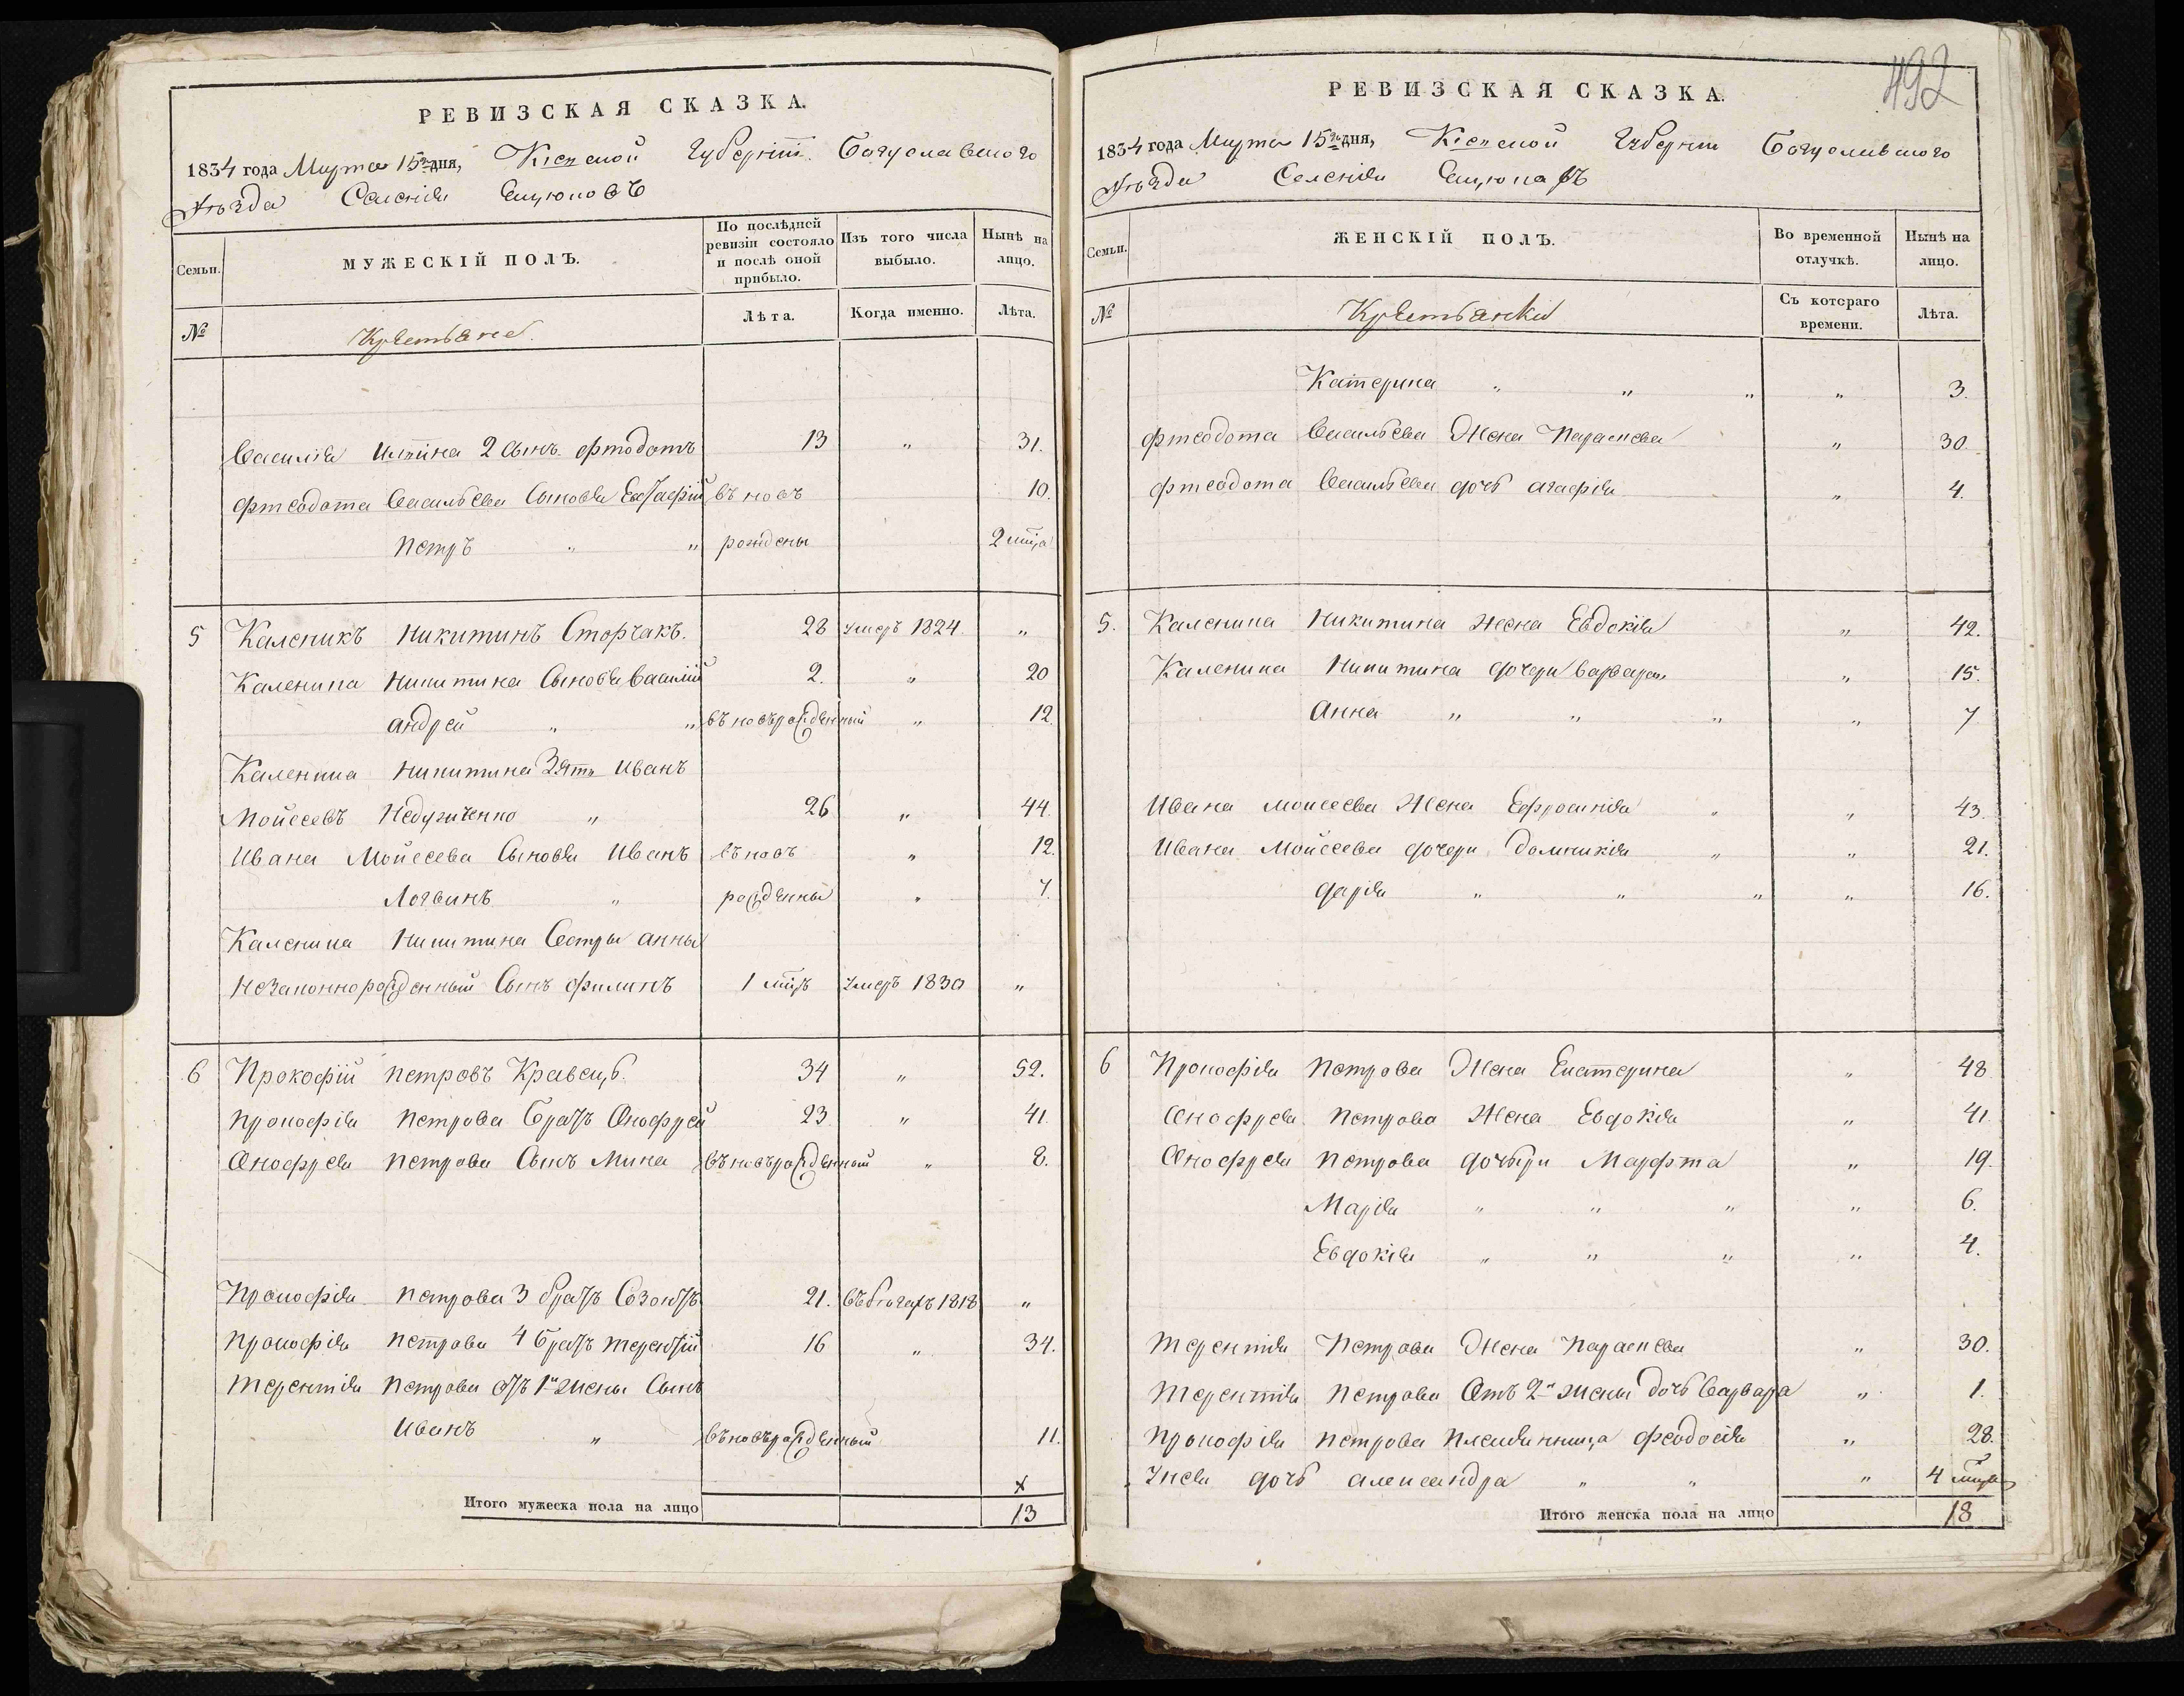 РЕВИЗСКАЯ СКАЗКА.
1834 года Марта 15го дня, Кіевской Губерніи. Богуславского
Уѣзда Селенія Ещюковъ
Семьи.
МУЖЕСКІЙ ПОЛЪ.
По послѣдней ревизіи состояло и послѣ оной прибыло.
Изъ того числа выбыло.
Нынѣ на лицо.
№
Крестьяне.
Лѣта.
Когда именно.
Лѣта.
Василія 2 Сынъ Фтодотъ 13 " 31.
Фтеодота Васильева Сыновья Евстафій въ новъ 10.
Петръ " " рождены 2 мѣца
5 Каленикъ Никитинъ Сторчакъ. 28 умеръ 1824. "
Каленика Никитина Сыновья Василій 2. " 20
андрей " " въ новърожденный " 12.
Каленика Никитина Зять Иванъ
Мойсеевъ " 26 " 44.
Ивана Мойсеева Сыновья Иванъ въ новъ " 12.
Логвинъ " рожденны " 7.
Каленика Никитина Сестры анны
Незаконнорожденный Сынъ филипъ 1 мѣцъ умеръ 1830 "
6 Прокофій петровъ Кравецъ. 34 " 52.
прокофія петрова братъ Онофрей 23. " 41.
Онофрея петрова Сынъ Мина въ новърожденный " 8.
Прокофія петрова 3 братъ Созонтъ 21. въ бѣгахъ 1818 "
прокофія петрова 4 братъ терентій 16 " 34.
терентія петрова отъ 1й жены Сынъ
Иванъ " въ новърожденный 11.
х
Итого мужеска пола на лицо 13
492
РЕВИЗСКАЯ СКАЗКА.
1834 года Марта 15го дня, Кіевской Губерніи Богуславского
Уѣзда Селенія Ещюковъ
Семьи.
ЖЕНСКІЙ ПОЛЪ.
Во временной отлучкѣ.
Нынѣ на лицо.
№
Крестьянки
Съ котораго времени.
Лѣта.
Катерина " " " " 3.
фтеодота Васильева Жена Параскева " 30.
фтеодота Васильева дочь агафія " 4.
5. Каленика Никитина жена Евдокія " 42.
Каленика Никитина дочери варвара " 15.
Анна " " " " 7
Ивана моисеева Жена Ефросинія " " 43.
Ивана Мойсеева дочери Домникія " " 21.
дарія " " " " 16.
6 Прокофія петрова Жена Екатерина " 48
Онофрея петрова Жена Евдокія " 41.
Онофрея петрова дочери Марфта " 19.
Марія " " " " 6.
Евдокія " " " " 4.
терентія Петрова Жена Параскева " 30.
терентія петрова Отъ 2й жены дочь варвара " 1.
прокофія петрова племянница феодосія " 28.
У нея дочь александра " " " 4 мѣца
Итого женска пола на лицо 18